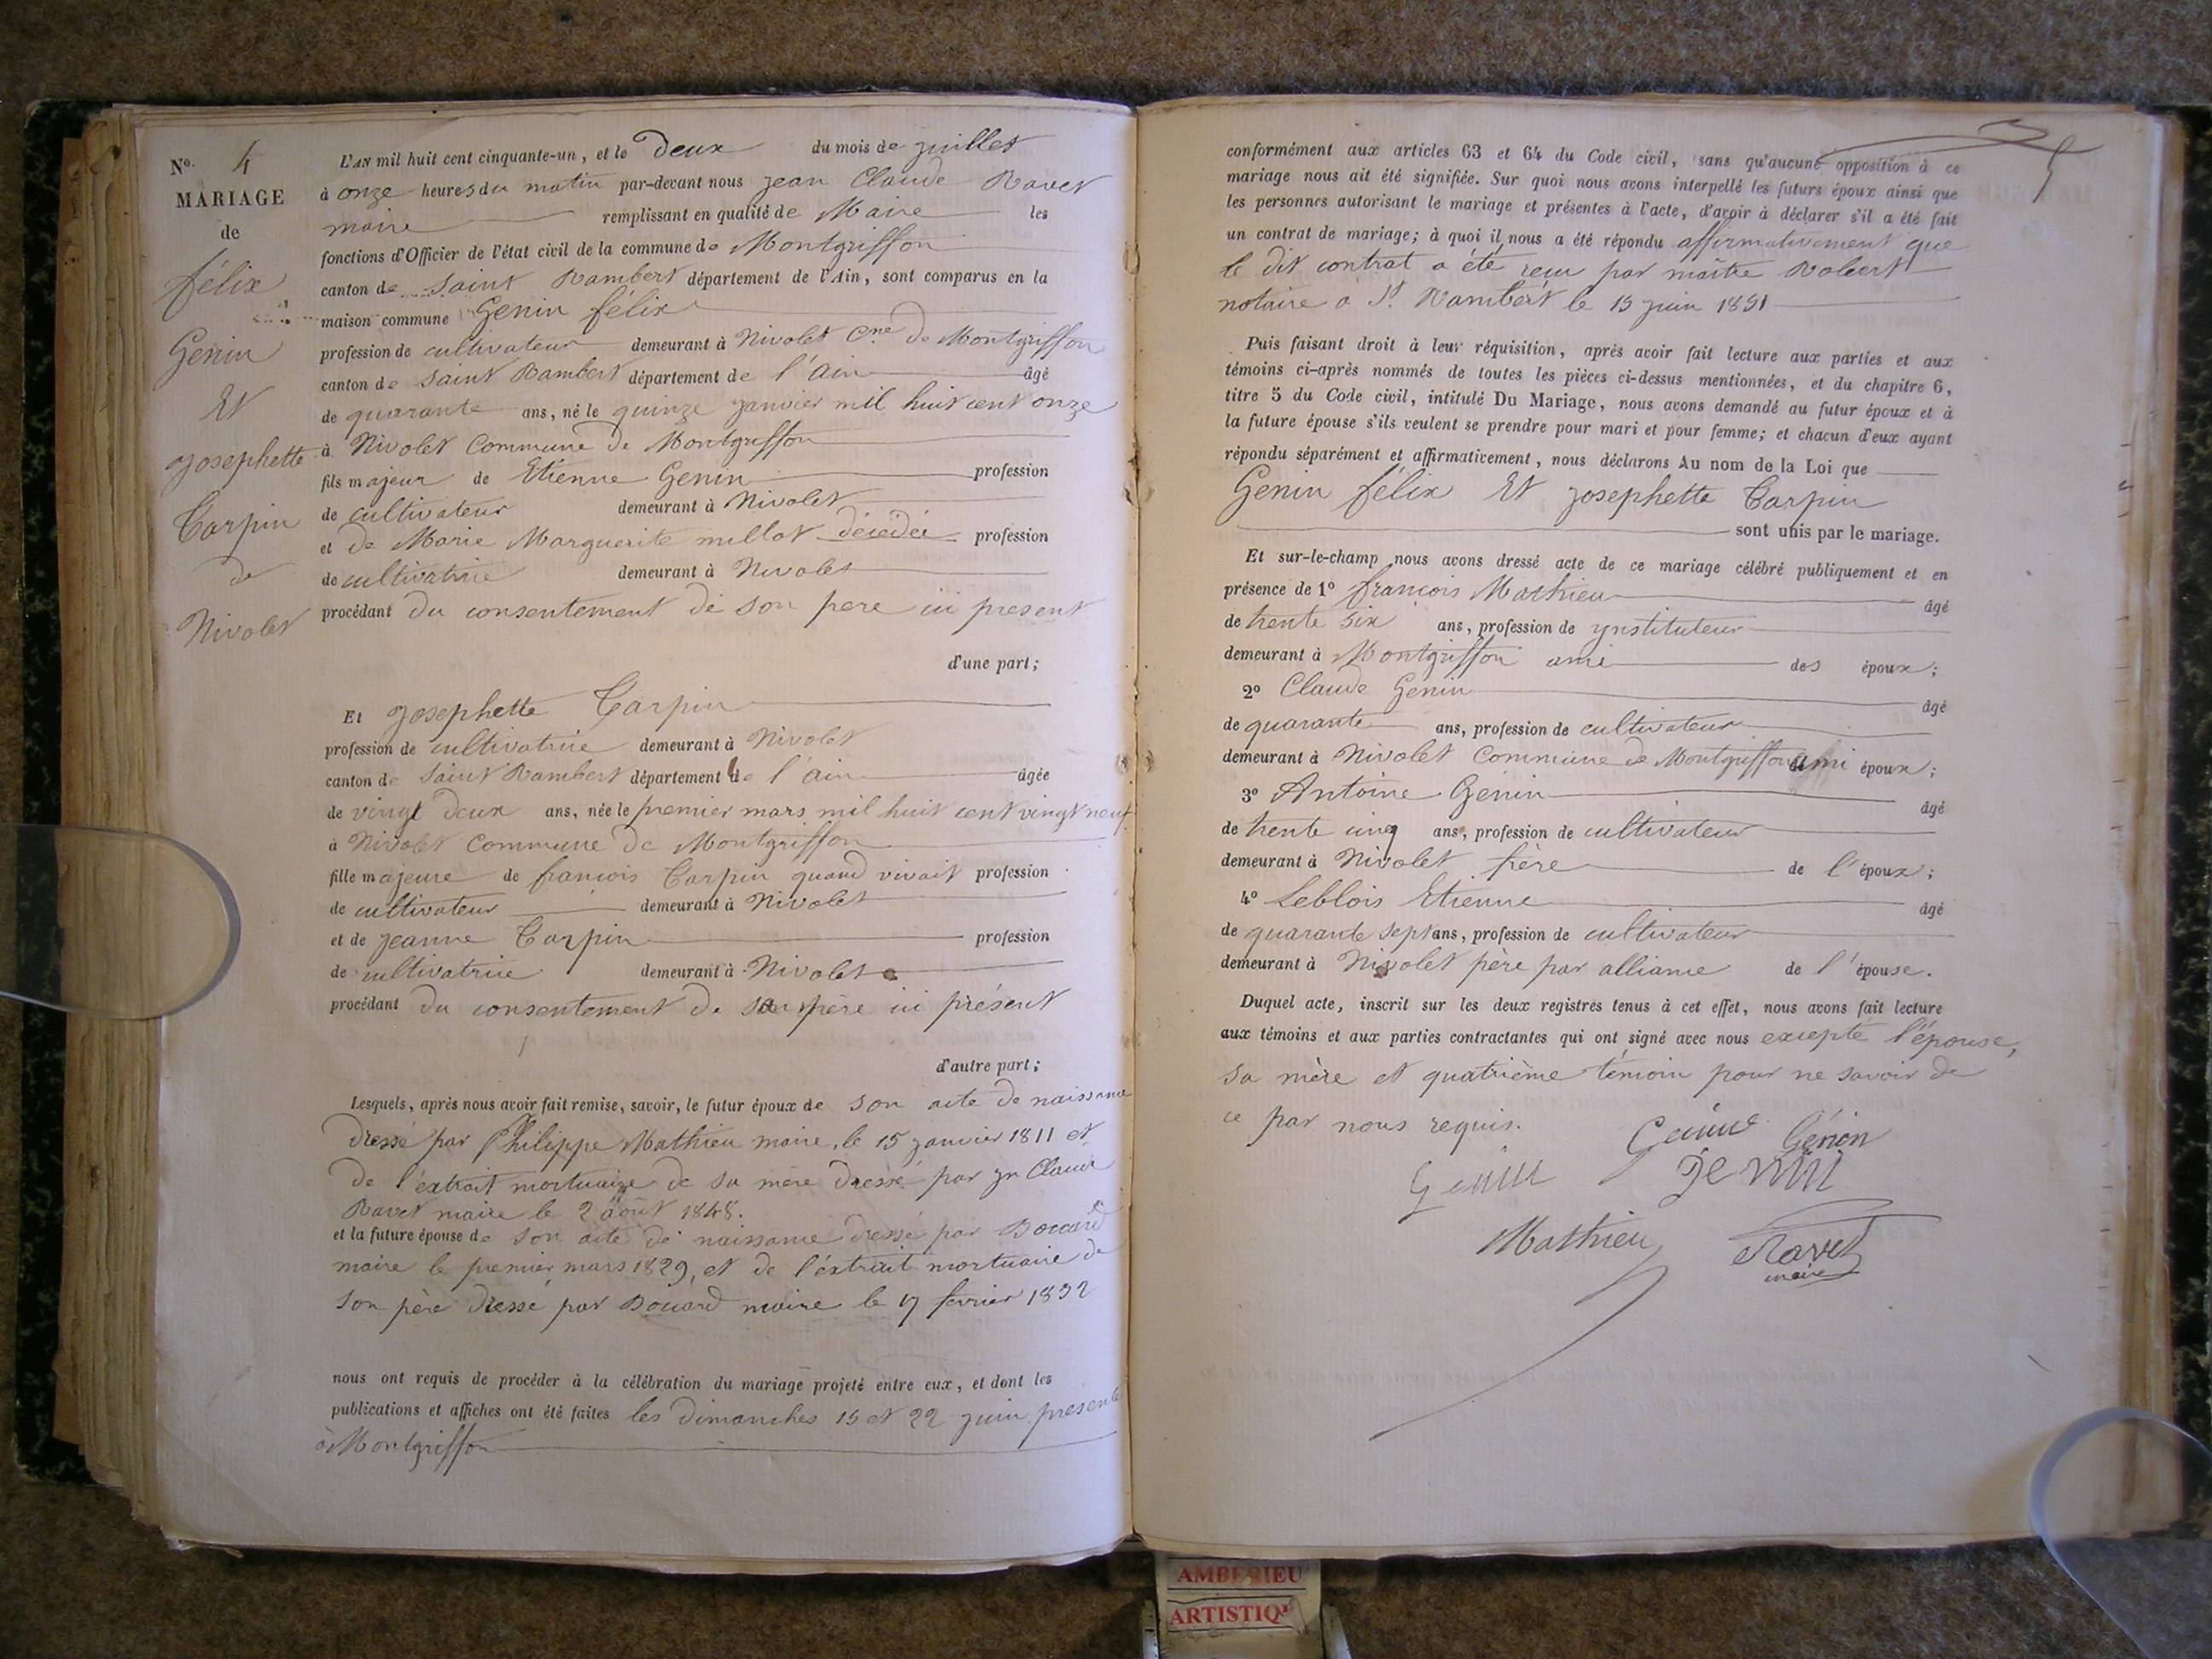 No. 4
MARIAGE
de
félix
Genin
Et
Josephette
Carpin
de
Nivolet
L'AN mil huit cent cinquante-un, et le Deux du mois de Juillet
à onze heures du matin par-devant nous Jean Claude Ravet
maire remplissant en qualité de Maire les
fonctions d'Officier de l'état civil de la commune de Montgriffon
canton de Saint Rambert département de l'Ain, sont comparus en la
maison commune Genin félix
profession de cultivateur demeurant à Nivolet Cne de Montgriffon
canton de Saint Rambert département de l'Ain âgé
de quarante ans, né le quinze Janvier mil huit cent onze
à Nivolet Commune de Montgriffon
fils majeur de Etienne Genin profession
de cultivateur demeurant à Nivolet
et de Marie Marguerite millot décédée profession
de cultivatrice demeurant à Nivolet
procédant du consentement de son pere ici present
d'une part;
Et Josephette Carpin
profession de cultivatrice demeurant à Nivolet
canton de Saint Rambert département de l'ain âgée
de vingt deux ans, née le premier mars mil huit cent vingt neuf
à Nivolet Commune de Montgriffon
fille majeure de francois Carpin quand vivait profession
de cultivateur demeurant à Nivolet
et de Jeanne Carpin profession
de cultivatrice demeurant à Nivolet
procédant du consentement de sa mère ici présent
d'autre part;
Lesquels, après nous avoir fait remise, savoir, le futur époux de son acte de naissance
dressé par Philippe Mathieu maire, le 15 janvier 1811 et
de l'extrait mortuaire de sa mère dressé par Jn Claude
Ravet maire le 2 août 1848.
et la future épouse de son acte de naissance dressé par Bouard
maire le premier mars 1829, et de l'extrait mortuaire de
son père dressé par Bouard maire le 17 fevrier 1832
nous ont requis de procéder à la célébration du mariage projeté entre eux, et dont les
publications et affiches ont été faites les dimanches 15 et 22 juin present
à Montgriffon
5
conformément aux articles 63 et 64 du Code civil, sans qu'aucune opposition à ce
mariage nous ait été signifiée. Sur quoi nous avons interpellé les futurs époux ainsi que
les personnes autorisant le mariage et présentes à l'acte, d'avoir à déclarer s'il a été fait
un contrat de mariage; à quoi il nous a été répondu affirmativement que
le dit contrat a été reçu par maître Robert
notaire a St. Rambert le 15 juin 1851
Puis faisant droit à leur réquisition, après avoir fait lecture aux parties et aux
témoins ci-après nommés de toutes les pièces ci-dessus mentionnées, et du chapitre 6,
titre 5 du Code civil, intitulé Du Mariage, nous avons demandé au futur époux et à
la future épouse s'ils veulent se prendre pour mari et pour femme; et chacun d'eux ayant
répondu séparément et affirmativement, nous déclarons Au nom de la Loi que
Genin félix Et Josephette Carpin
sont unis par le mariage.
Et sur-le-champ nous avons dressé acte de ce mariage célébré publiquement et en
présence de 1º francois Mathieu âgé
de trente six ans, profession de ynstituteur
demeurant à Montgriffon ami des époux;
2º Claude Genin âgé
de quarante ans, profession de cultivateur
demeurant à Nivolet Commune de Montgriffon ami époux;
3º Antoine Genin âgé
de trente cinq ans, profession de cultivateur
demeurant à Nivolet frère de l'époux;
4º Leblois Etienne âgé
de quarante sept ans, profession de cultivateur
demeurant à Nivolet père par alliance de l'épouse.
Duquel acte, inscrit sur les deux registres tenus à cet effet, nous avons fait lecture
aux témoins et aux parties contractantes qui ont signé avec nous excepté l'épouse,
sa mère et quatrième témoin pour ne savoir de
ce par nous requis.
Genin Génin
Genin Genin
Mathieu Ravet
maire
AMBERIEU
ARTISTIQ